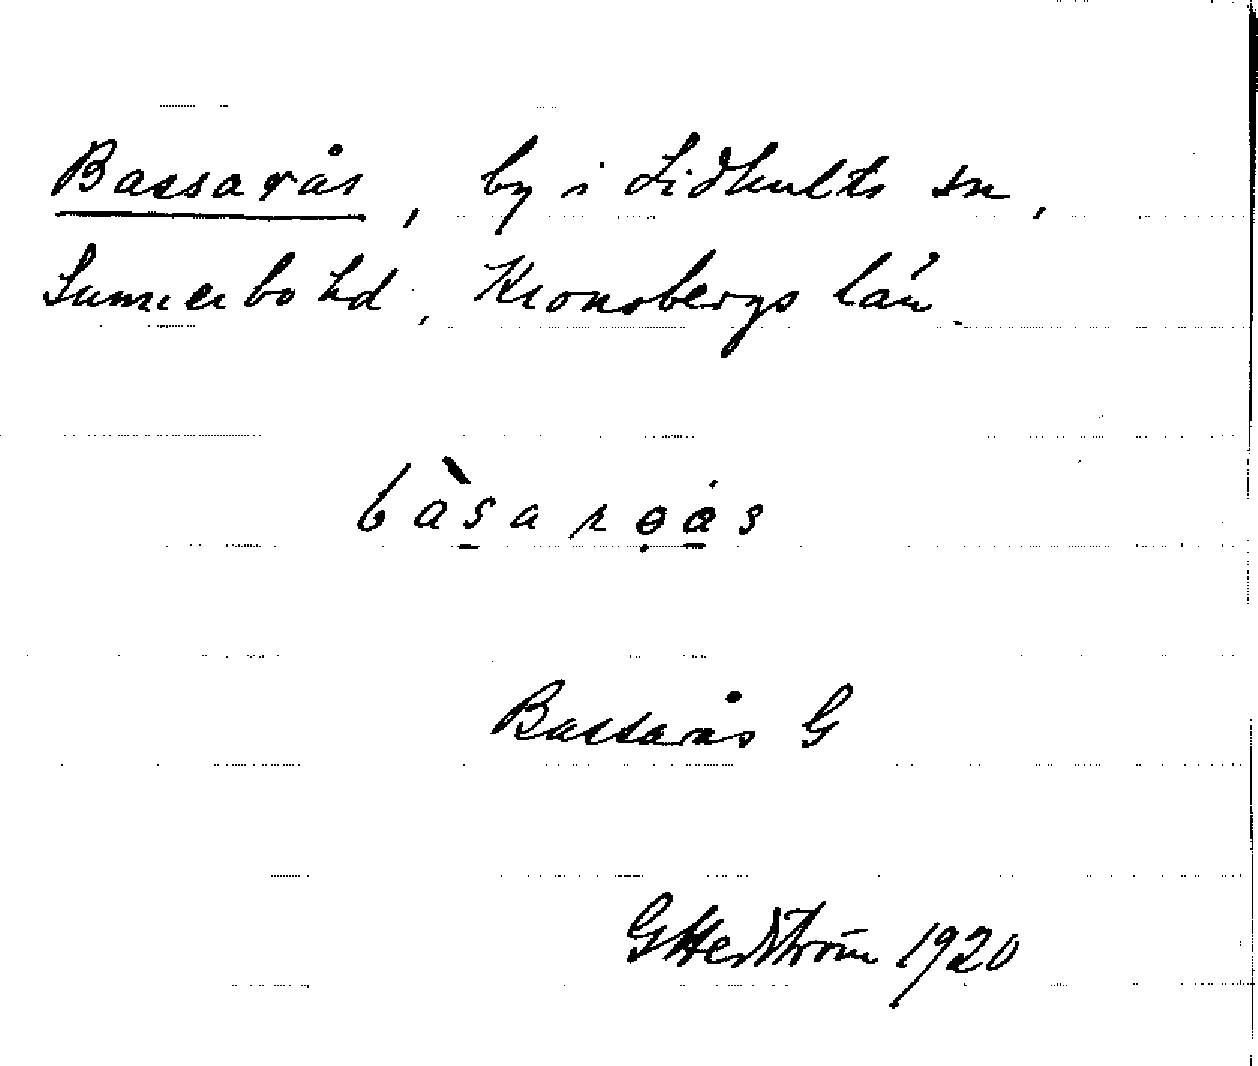 Bassarås, by i Lidhults sn,
Sunnerbo hd, Kronobergs län.
bàsarɵ̣ås
Bassarås G
G Hedström 1920